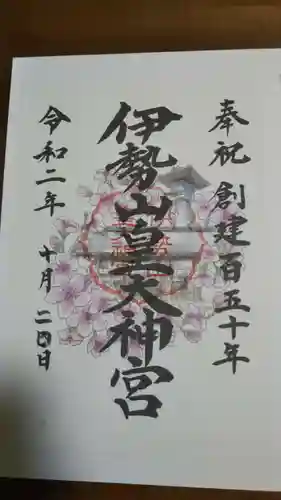 奉祝創建百五十年
伊勢山皇大神宮
令和二年十月二四日